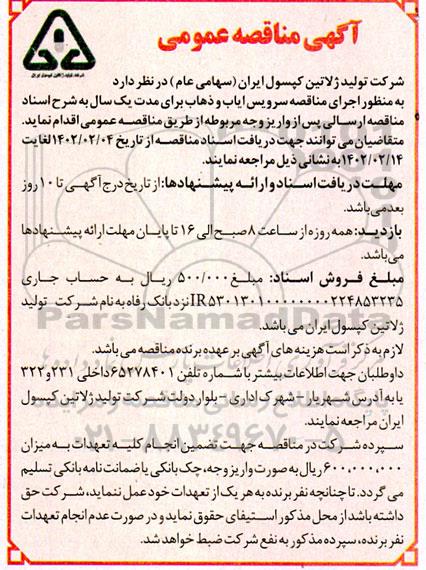 آگهی مناقصه عمومی
شرکت تولید ژلاتین کپسول ایران
شرکت تولید ژلاتین کپسول ایران (سهامی عام) در نظر دارد
به منظور اجرای مناقصه سرویس ایاب و ذهاب برای مدت یک سال به شرح اسناد
مناقصه ارسالی پس از واریز وجه مربوطه از طریق مناقصه عمومی اقدام نماید.
متقاضیان می توانند جهت دریافت اسناد مناقصه از تاریخ ۱۴۰۲/۰۲/۰۴ لغایت
۱۴۰۲/۰۲/۱۴ به نشانی ذیل مراجعه نمایند.
مهلت دریافت اسناد و ارائه پیشنهادها: از تاریخ درج آگهی تا ۱۰ روز
بعد می باشد.
بازدید: همه روزه از ساعت ۸ صبح الی ۱۶ تا پایان مهلت ارائه پیشنهادها
می باشد.
مبلغ فروش اسناد: مبلغ ۵۰۰/۰۰۰ ریال به حساب جاری
IR۵۳۰۱۳۰۱۰۰۰۰۰۰۰۰۰۲۲۴۸۵۳۲۳۵ نزد بانک رفاه به نام شرکت تولید
ژلاتین کپسول ایران می باشد.
لازم به ذکر است هزینه های آگهی بر عهده برنده مناقصه می باشد.
داوطلبان جهت اطلاعات بیشتر با شماره تلفن ۶۵۲۷۸۴۰۱ داخلی ۲۳۱ و ۳۲۲
یا به آدرس شهریار - شهرک اداری - بلوار دولت شرکت تولید ژلاتین کپسول
ایران مراجعه نمایند.
سپرده شرکت در مناقصه جهت تضمین انجام کلیه تعهدات به میزان
۶۰۰،۰۰۰،۰۰۰ ریال به صورت واریز وجه، چک بانکی یا ضمانت نامه بانکی تسلیم
می گردد. تا چنانچه نفر برنده به هر یک از تعهدات خود عمل ننماید، شرکت حق
داشته باشد از محل مذکور استیفای حقوق نماید و در صورت عدم انجام تعهدات
نفر برنده، سپرده مذکور به نفع شرکت ضبط خواهد شد.
ParsNamadData
۰۲۱-۸۸۳۴۹۶۷۰-۵